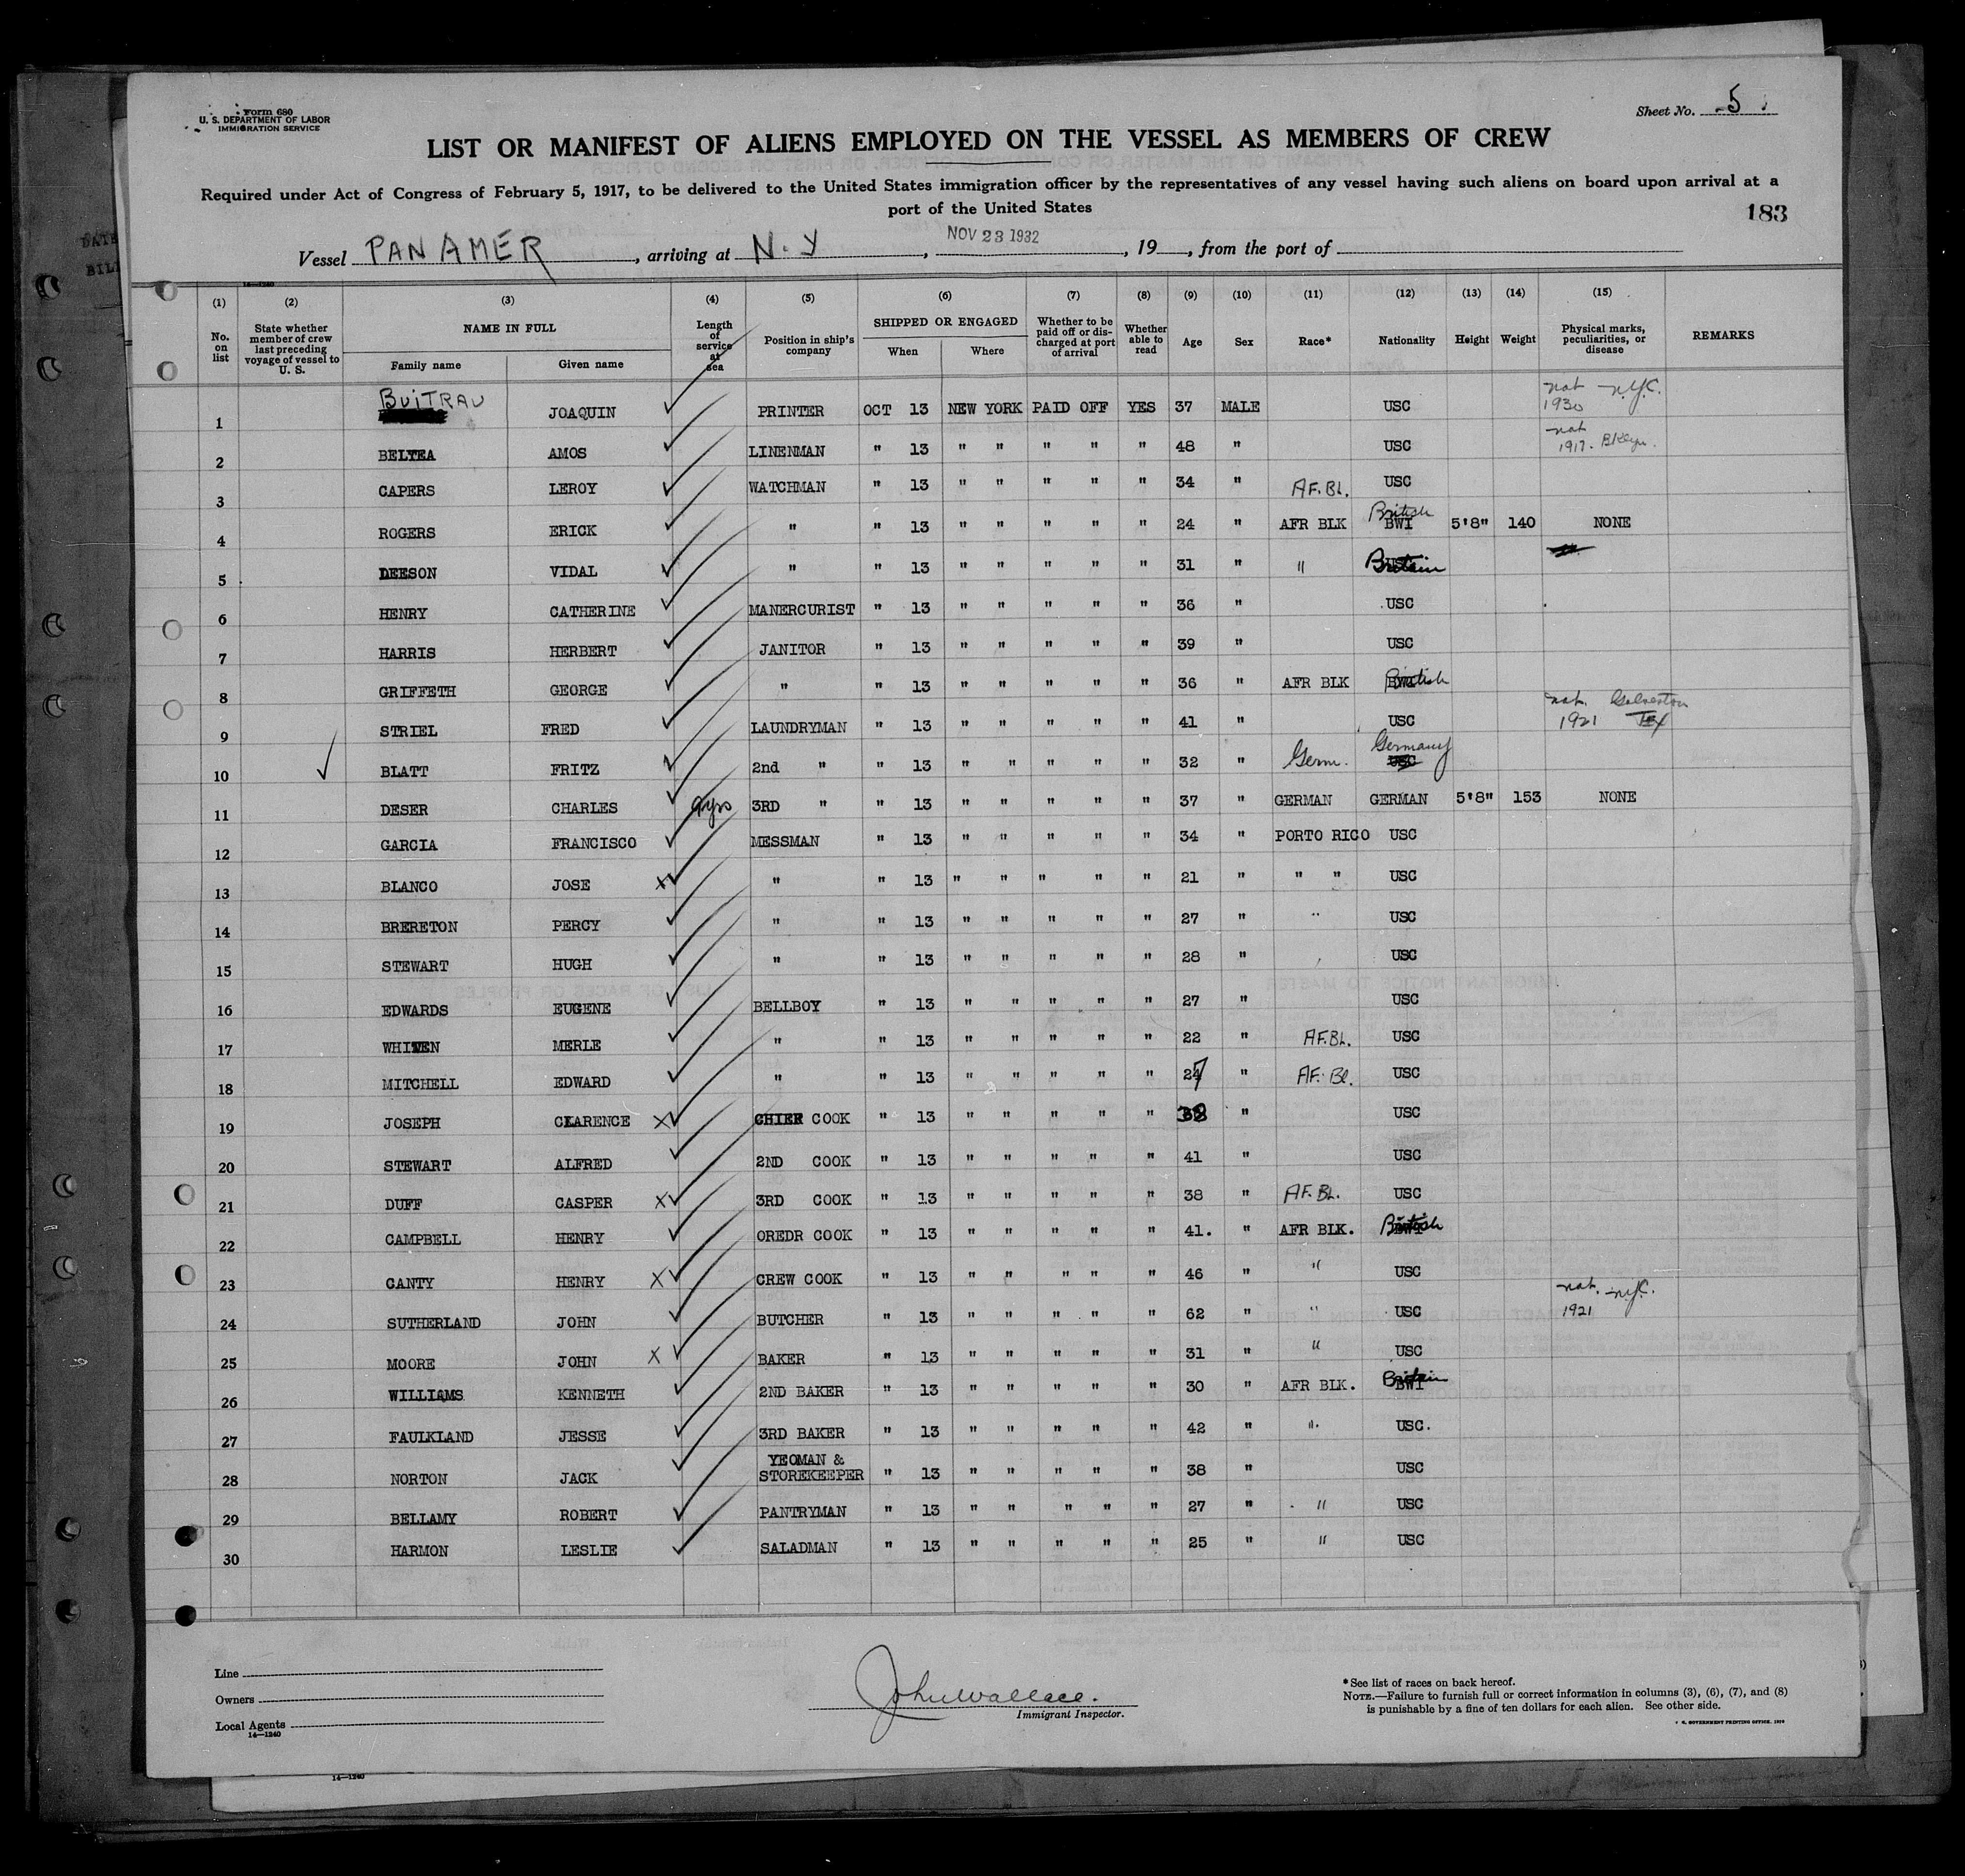 Form 680
U. S. DEPARTMENT OF LABOR
IMMIGRATION SERVICE
Sheet No. 5
LIST OR MANIFEST OF ALIENS EMPLOYED ON THE VESSEL AS MEMBERS OF CREW
Required under Act of Congress of February 5, 1917, to be delivered to the United States immigration officer by the representatives of any vessel having such aliens on board upon arrival at a
port of the United States
183
Vessel PAN AMER, arriving at N.Y, NOV 23 1932, 19, from the port of
14—1240
(1) (2) (3) (4) (5) (6) (7) (8) (9) (10) (11) (12) (13) (14) (15)
No. on list State whether member of crew last preceding voyage of vessel to U. S. NAME IN FULL Family name Given name Length of service at sea Position in ship's company SHIPPED OR ENGAGED When Where Whether to be paid off or discharged at port of arrival Whether able to read Age Sex Race* Nationality Height Weight Physical marks, peculiarities, or disease REMARKS
1 BUITRAU JOAQUIN PRINTER OCT 13 NEW YORK PAID OFF YES 37 MALE USC nat N.Y.C. 1930
2 BELYEA AMOS LINENMAN " 13 " " " " " 48 " USC nat 1917. Bklyn.
3 CAPERS LEROY WATCHMAN " 13 " " " " " 34 " AF. BL. USC
4 ROGERS ERICK " " 13 " " " " " 24 " AFR BLK British BWI 5'8" 140 NONE
5 DEESON VIDAL " " 13 " " " " " 31 " " Britain
6 HENRY CATHERINE MANERCURIST " 13 " " " " " 36 " USC
7 HARRIS HERBERT JANITOR " 13 " " " " " 39 " USC
8 GRIFFETH GEORGE " " 13 " " " " " 36 " AFR BLK British
9 STRIEL FRED LAUNDRYMAN " 13 " " " " " 41 " USC nat. Galveston 1921 Tex
10 BLATT FRITZ 2nd " " 13 " " " " " 32 " Germ. Germany USC
11 DESER CHARLES 9yrs 3RD " " 13 " " " " " 37 " GERMAN GERMAN 5'8" 153 NONE
12 GARCIA FRANCISCO MESSMAN " 13 " " " " " 34 " PORTO RICO USC
13 BLANCO JOSE X " " 13 " " " " " 21 " " " USC
14 BRERETON PERCY " " 13 " " " " " 27 " " USC
15 STEWART HUGH " " 13 " " " " " 28 " USC
16 EDWARDS EUGENE BELLBOY " 13 " " " " " 27 " USC
17 MERLE " " 13 " " " " " 22 " AF.BL. USC
18 MITCHELL EDWARD " " 13 " " " " " 27 " AF. Bl. USC
19 JOSEPH CLARENCE X CHIEF COOK " 13 " " " " " 38 " USC
20 STEWART ALFRED 2ND COOK " 13 " " " " " 41 " USC
21 DUFF CASPER X 3RD COOK " 13 " " " " " 38 " AF. BL. USC
22 CAMPBELL HENRY OREDR COOK " 13 " " " " " 41. " AFR BLK. British
23 CANTY HENRY X CREW COOK " 13 " " " " " 46 " " USC
24 SUTHERLAND JOHN BUTCHER " 13 " " " " " 62 " " USC nat. N.Y.C. 1921
25 MOORE JOHN X BAKER " 13 " " " " " 31 " " USC
26 WILLIAMS KENNETH 2ND BAKER " 13 " " " " " 30 " AFR BLK. Britain BWI
27 FAULKLAND JESSE 3RD BAKER " 13 " " " " " 42 " " USC.
28 NORTON JACK YEOMAN & STOREKEEPER " 13 " " " " " 38 " USC
29 BELLAMY ROBERT PANTRYMAN " 13 " " " " " 27 " " USC
30 HARMON LESLIE SALADMAN " 13 " " " " " 25 " " USC
Line
Owners
Local Agents
14—1240
John Wallace.
Immigrant Inspector.
*See list of races on back hereof.
NOTE.—Failure to furnish full or correct information in columns (3), (6), (7), and (8)
is punishable by a fine of ten dollars for each alien. See other side.
14—1240